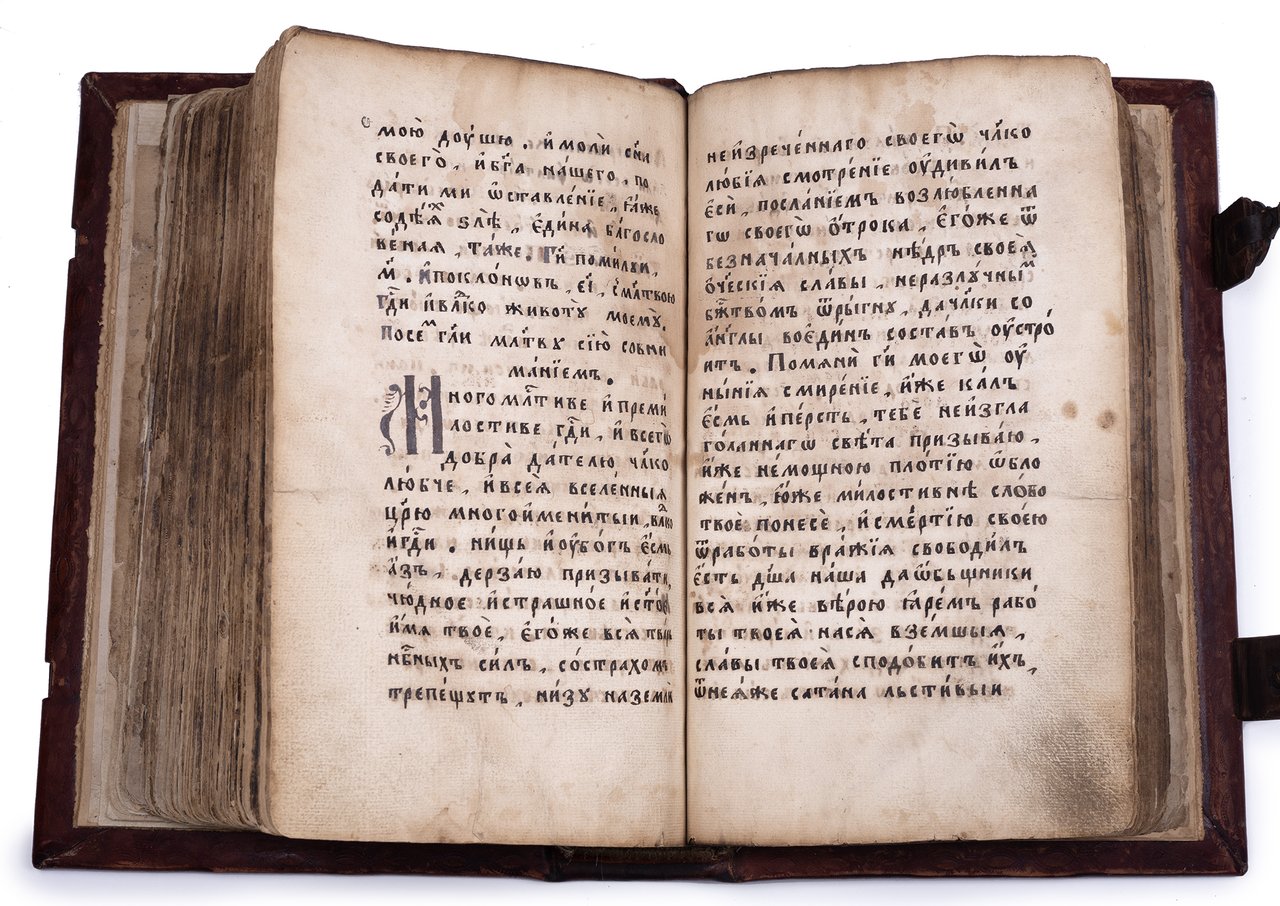 мою̀ доу́шю . и҆молѝ сн҃а
своегѡ̀ , и҆бг҃а на́шего , по
да́ти ми ѡ҆ставле́нїе , ꙗ҆́же
содѣ́ꙗⷯ ѕлѣ̀ , є҆ди́на бл҃госло
ве́ная , та́же . Гд҇и поми́луи ,
м҃ . и҆поклони́въ , сѧ҃ , с̾мл҃твою
гд҇и и҆влⷣко животꙋ̀ моемꙋ̀ .
Посеⷨ гл҃и мл҃твꙋ сїю̀ совни
ма́нїемъ .
Многомл҇тиве и҆ преми́
лостиве гд҇и , и҆ всегѡ̀
добра̀ да́телю чл҃ко
лю́бче , и҆ всеѧ̀ вселе́нныѧ
цр҃ю многои҆мени́тыи , влⷣко
и҆гд҇и . ни́щь и҆ оу҆бо́гъ є҆́смь
а҆́зъ , дерза́ю призыва́ти ,
чю́дное и҆ стра́шно́е и҆ ст҃о́е
и҆́мѧ твоѐ , є҆го́же всѧ̀ тва́рь
нб҇ныхъ си́лъ , со стра́хомъ
трепе́щутъ , ни́зу на землѝ
неи҆зрече́ннаго своегѡ̀ чл҃ко
лю́бїѧ смотре́нїе оу҆диви́лъ
є҆сѝ , посла́нїемъ возлю́бленна
гѡ своегѡ̀ ѻ҆́трока , є҆го́же ѿ
безнача́лныхъ нѣ́дръ своеѧ̀
ѻ҆́ческїѧ сла́вы , неразлу́чныⷨ
бж҇тво́мъ ѿры́гнꙋ , да чл҃ки со
а҆́гг҃лы воє҆ди́нъ соста́въ оу҆стро́
итъ . Помѧнѝ гд҇и моегѡ̀ оу҆
ны́нїѧ смире́нїе , и҆́же ка́лъ
є҆́смь и҆ пе́рсть , тебѐ неи҆згла
го́ланнагѡ свѣ́та призыва́ю ,
и҆́же не́мощною пло́тїю ѡ҆бло
же́нъ , ю҆́же ми́лостивнѣ сло́во
твоѐ понесѐ , и҆ сме́ртїю свое́ю
ѿ рабо́ты вра́жїѧ свободи́лъ
є҆́сть дш҃а на́ша да ѡ҆́бьщники
всѧ̀ и҆́же вѣ́рою ꙗ҆ре́мъ рабо́
ты твоеѧ̀ насѧ̀ взе́мшыѧ ,
сла́вы твоеѧ̀ сподо́битъ и҆́хъ ,
ѿ неѧ́же сатана̀ льсти́выи